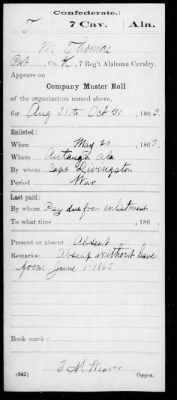 Confederate.
T 7 Cav. Ala.
W. Thomas
Pvt, Co. K, 7 Reg't Alabama Cavalry.
Appears on
Company Muster Roll
of the organization named above,
for Aug 31 to Oct 31, 1863.
Enlisted:
When May 20, 186
Where Autauga Ala
By whom Capt. Livingston
Period War
Last paid:
By whom Pay due from enlistment
To what time , 186 .
Present or absent Absent
Remarks: Absent without leave
from June 1 1863
Book mark:
T. M. Weaver
(642) Copyist.